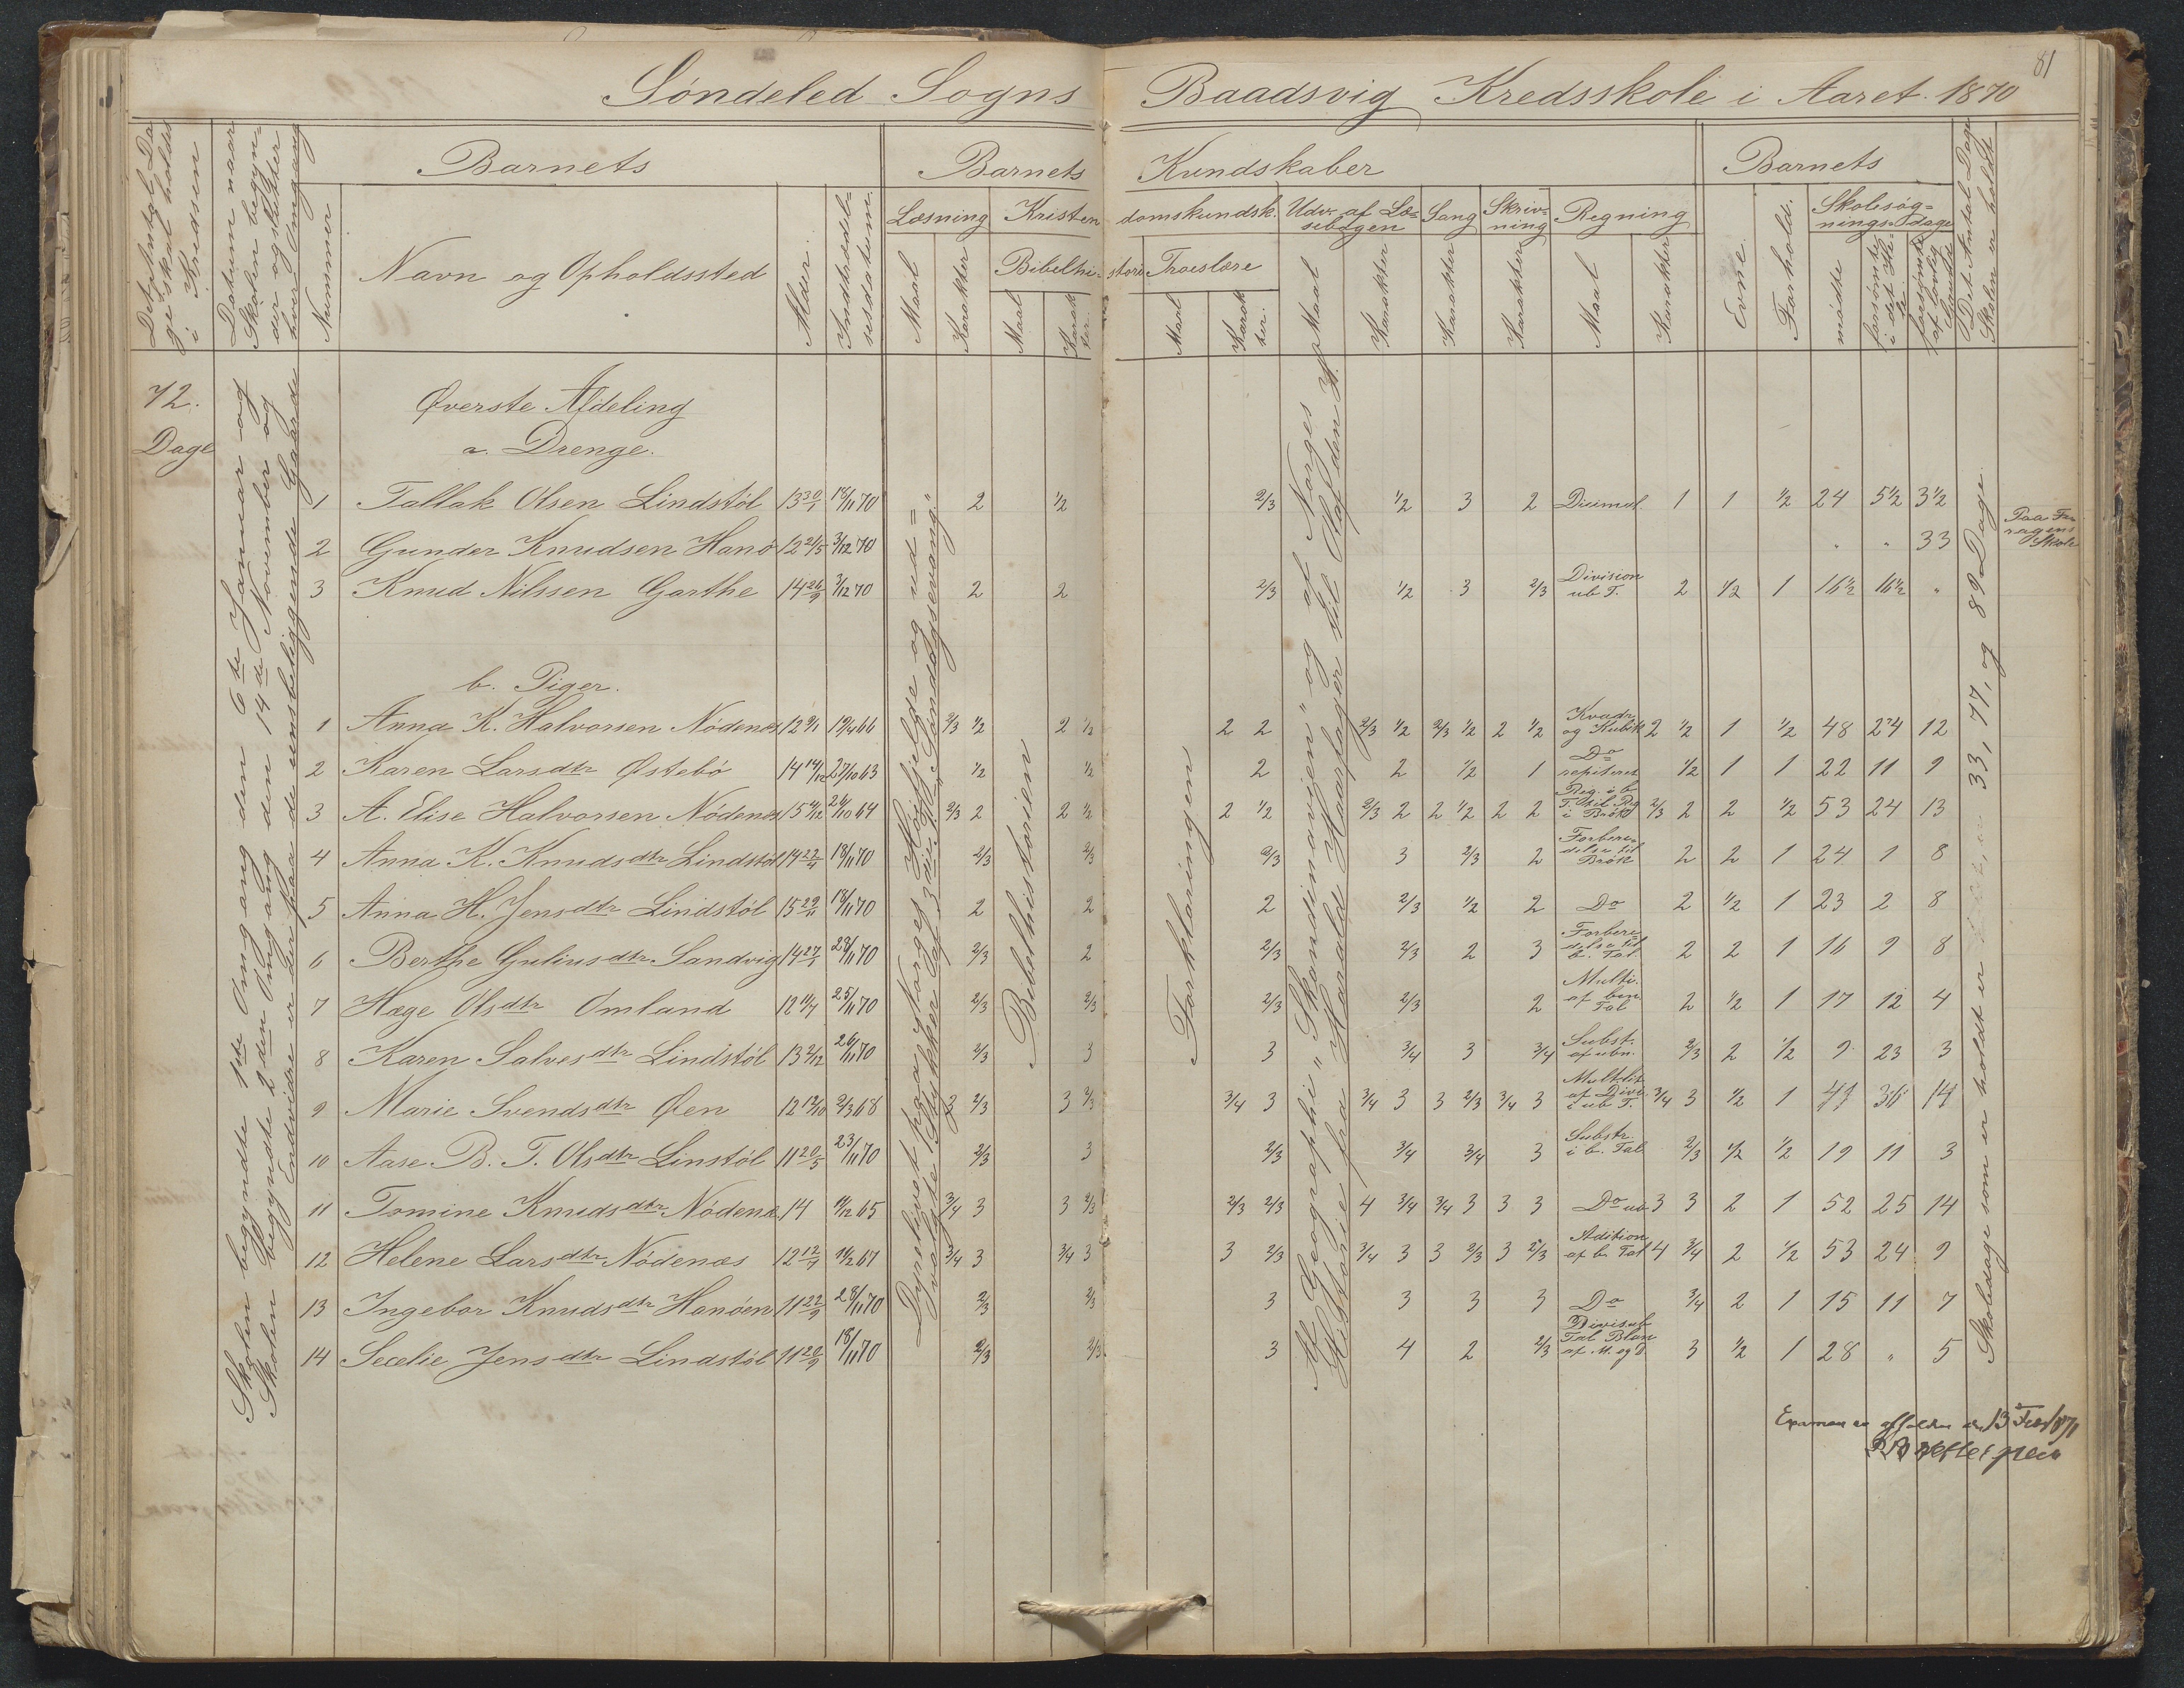 81
Søndeled Sogns Baadsvig Kredsskole i Aaret 1870
Det Antal Dage skal holdes i Kredsen
Datum naar Skolen begynder og slutter hver Omgang
Barnets
Nummer
Navn og Opholdssted
Alder.
Indtrædelsesdatum.
Barnets Kundskaber
Læsning
Maal
Karakter
Kristendomskundsk.
Bibelhistorie
Maal
Karakter.
Troeslære
Maal
Karakter.
Udv. af Læsebogen
Maal
Karakter
Sang
Karakter
Skrivning
Karakter
Regning
Maal
Karakter
Barnets
Evne.
Forhold.
Skolesøgningsdage
mødte
forsømte i det Hele
forsømte af lovlig Grunde
Det Antal Dage Skolen er holdt
72.
Dage
Skolen begyndte 1ste Omgang den 6te Januar og
Skolen begyndte 2den Omgang den 14de November og
Øverste Afdeling
a. Drenge.
1 Tallak Olsen Lindstøl 13 30/1 18/11 70 2 1/2 2/3 1/2 3 2 Decimal 1 1 1/2 24 5 1/2 3 1/2
2 Gunder Knudsen Hanø 12 21/5 3/12 70 " " 33 Paa Skole
3 Knud Nilssen Garthe 14 26/9 3/12 70 2 2 2/3 1/2 3 2/3 Division ub T. 2 1/2 1 16 1/2 16 1/2 "
b. Piger.
1 Anna K. Halvorsen Nødenes 12 9/1 19/4 66 2/3 1/2 2 1/2 2 2 2/3 1/2 2/3 1/2 2 1/2 Kvadr. og Kubik 2 1/2 1 1/2 48 24 12
2 Karen Larsdtr Østebø 14 14/12 27/10 63 1/2 1/2 2 2 1/2 1 Do repeteret 1/2 1 1 22 11 9
3 A. Elise Halvorsen Nødenes 15 4/12 24/10 64 2/3 2 2 1/2 2 1/2 2/3 2 2 1/2 2 2 Reg. i b. T. til Reg i Brøk 2/3 2 2 1/2 53 24 13
4 Anna K. Knudsdtr Lindstøl 14 22/4 18/11 70 2/3 2/3 2/3 3 2/3 2 Forberedelse til Brøk 2 2 1 24 1 8
5 Anna H. Jensdtr Lindstøl 15 29/11 18/11 70 2 2 2 2/3 1/2 2 Do 2 1/2 1 23 2 8
6 Berthe Guliusdtr Sandvig 14 27/1 28/11 70 2/3 2 2/3 2/3 2 3 Forberedelse til b. Tal 2 2 1 16 9 8
7 Hæge Olsdtr Omland 12 11/7 25/11 70 2/3 2/3 2/3 2/3 2 Multi. af ben. Tal 2 1/2 1 17 12 4
8 Karen Salvesdtr Lindstøl 13 2/12 26/11 70 2/3 3 3 3/4 3 3/4 Subst. af ubn. 2/3 2 1/2 9 23 3
9 Marie Svendsdtr Øen 12 12/10 2/3 68 3 2/3 3 2/3 3/4 3 3/4 3 3 2/3 3/4 3 Multpl. af Divi. i ub T. 3/4 3 1/2 1 47 36 14
10 Aase B. T. Olsdtr Linstøl 11 20/5 23/11 70 2/3 3 2/3 3/4 3/4 3 Substr. i b. Tal 2/3 1/2 1/2 19 11 3
11 Tomine Knudsdtr Nødenes 14 11/12 65 3/4 3 3 2/3 2/3 2/3 4 3/4 3/4 3 3 3 Do ub 3 3 2 1 52 25 14
12 Helene Larsdtr Nødenæs 12 12/7 11/2 67 3/4 3 3/4 3 3 2/3 3/4 3 3 2/3 3 2/3 Adition af b. Tal 4 3/4 2 1/2 53 24 9
13 Ingebor Knudsdtr Hanøen 11 22/9 28/11 70 2/3 2/3 3 3 3 3 Do 3/4 2 1 15 11 7
14 Secelie Jensdtr Lindstøl 11 20/9 18/11 70 2/3 2/3 3 4 2 2/3 Divis. ub Tal Blan af M. og D. 3 1/2 1 28 " 5
Bibelhistorien
Forklaringen
Af Geographi "Skandinavien" og af Norges
Historie fra Harald Haarfager til Olaf den H.
Skoledage som er holdt er 33, 77, og 89 Dage.
Examen er afholden den 13 Febr 1871